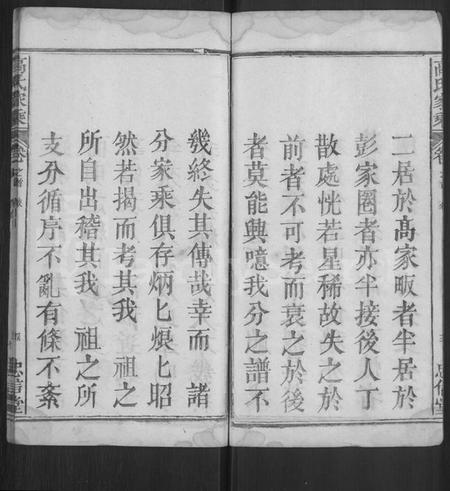 高氏家乘
二居於髙家畈者半居於
彭家圏者亦半接後人丁
散處恍若星稀故失之於
前者不可考而衰之於後
者莫能興噫我分之譜不
幾終失其傳哉幸而　諸
分家乘俱存炳匕烺匕昭
然若揭而考其我　祖之
所自出稽其我　祖之所
支分循序不亂有條不紊
高氏家乘
忠信堂
忠信堂